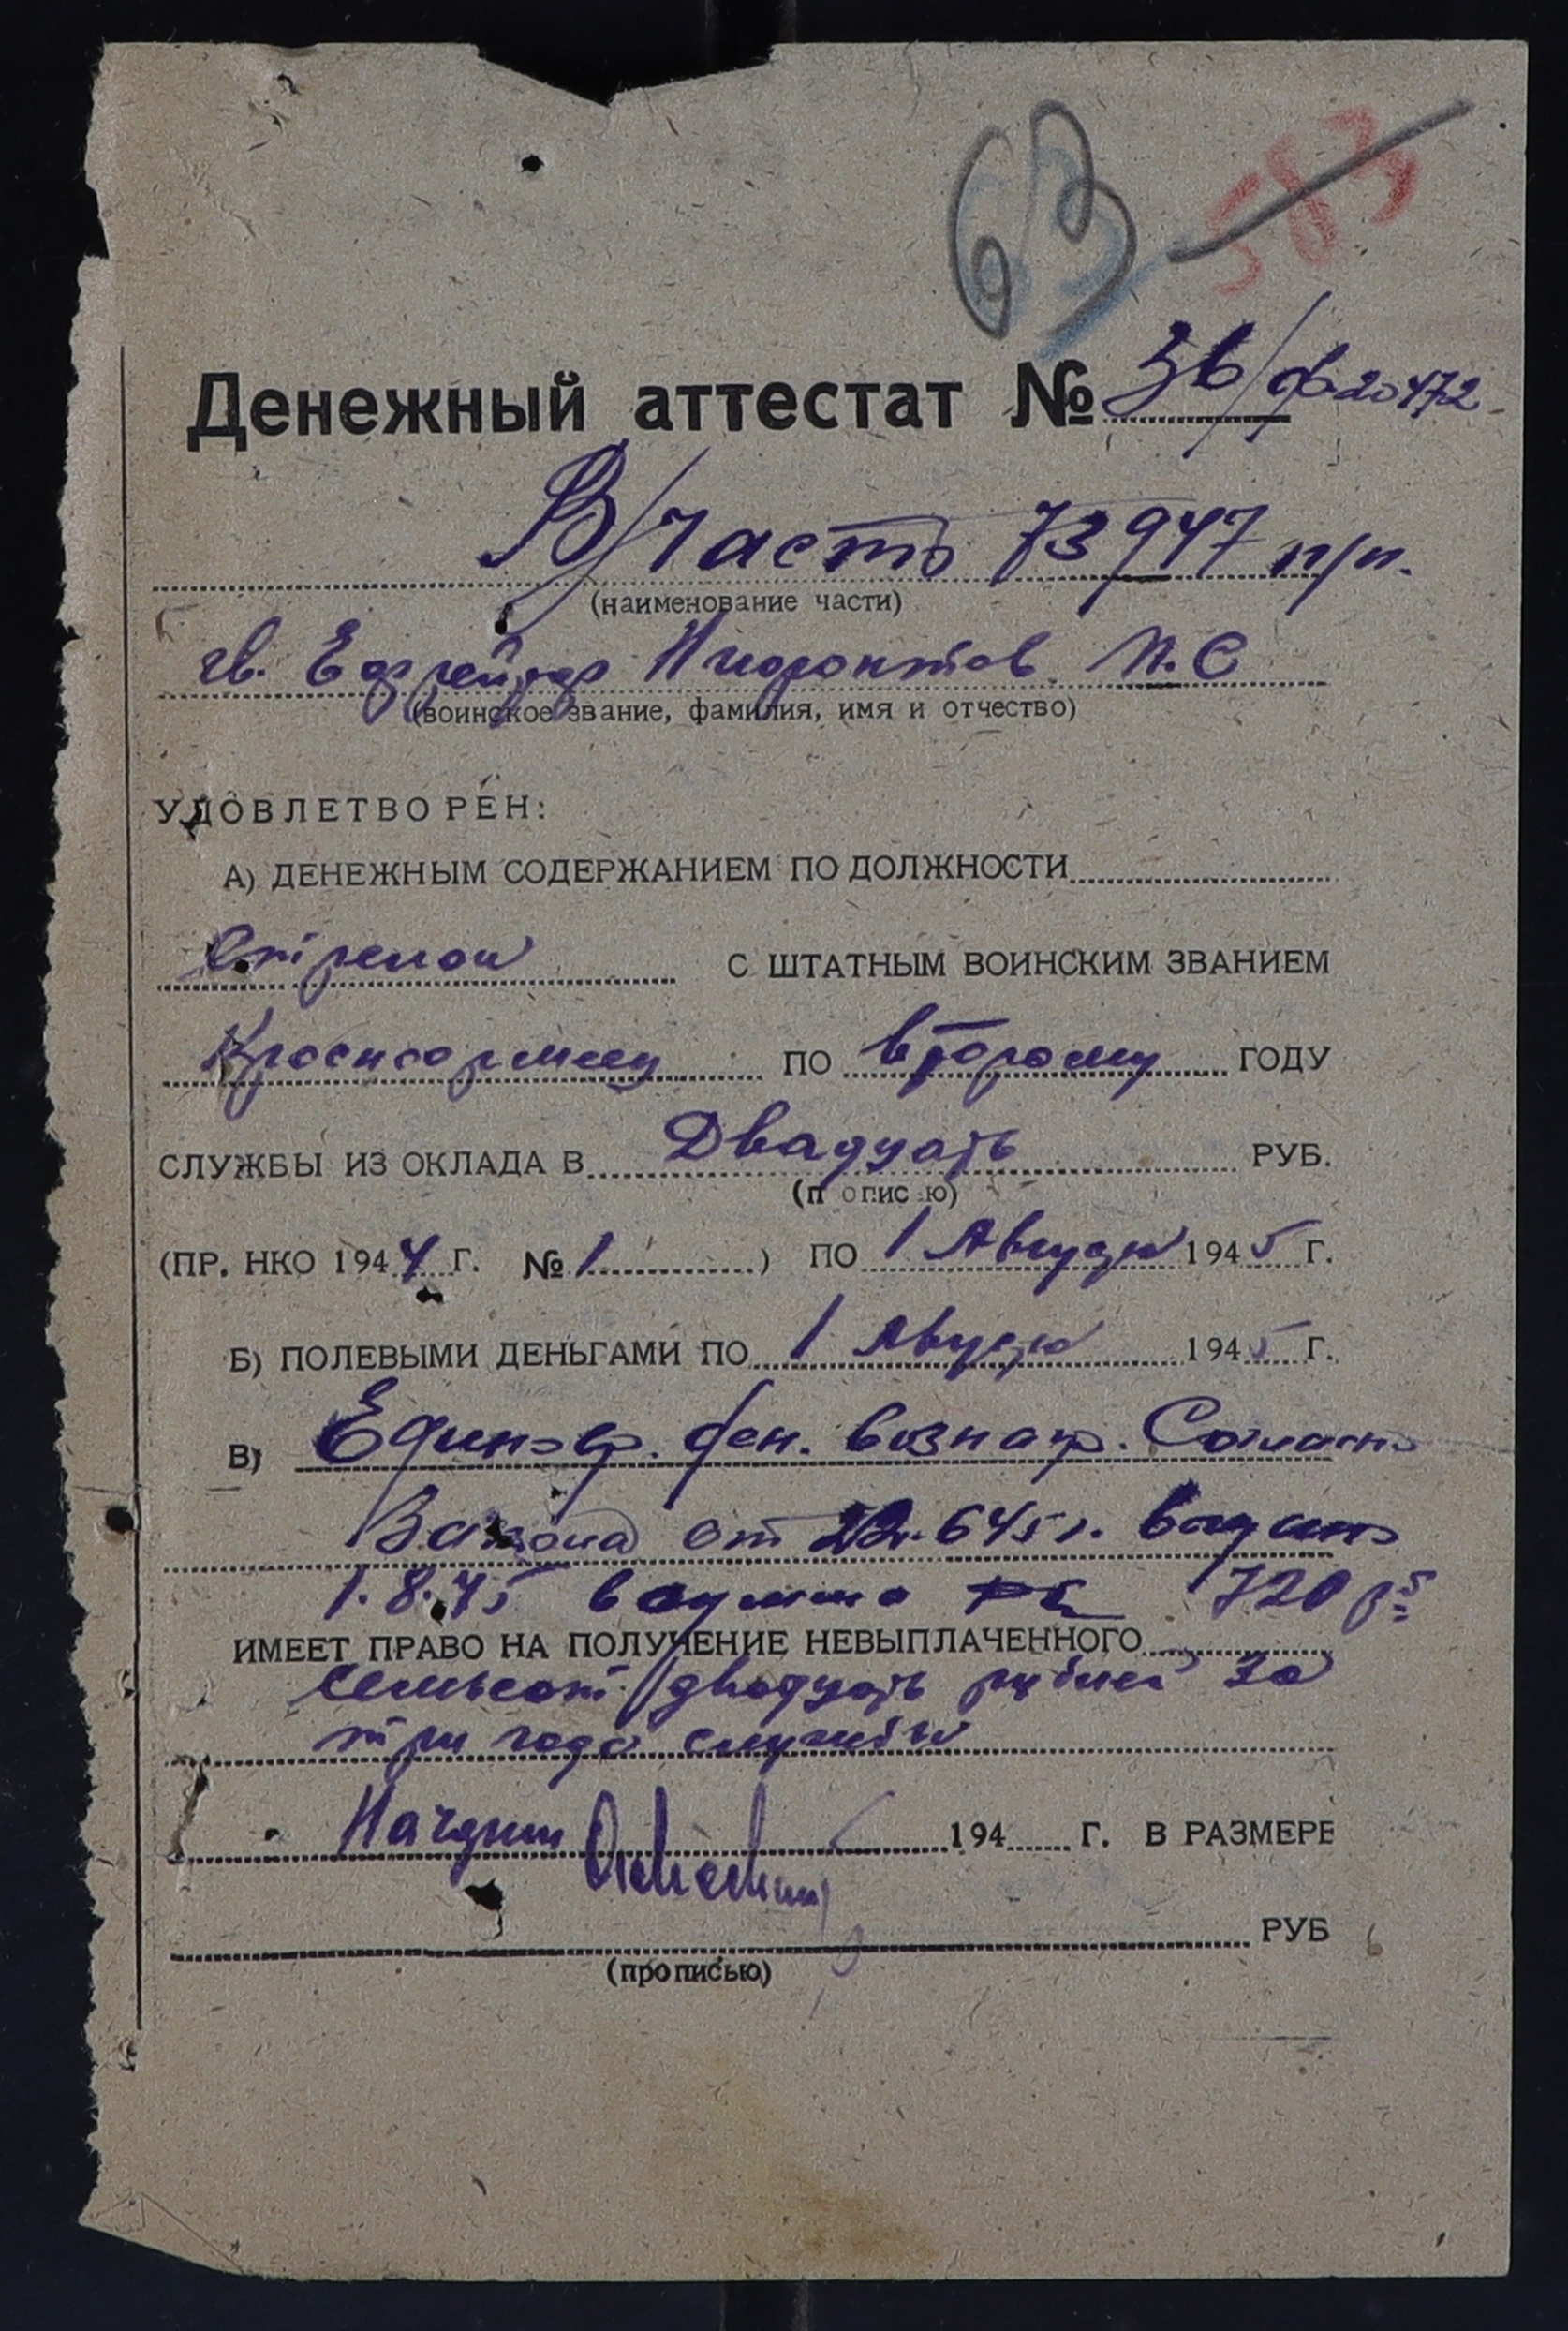 63 583
Денежный аттестат № 36/ф20472
В/часть 73947 п/п.
(наименование части)
гв. Ефрейтор П. С
(воинское звание, фамилия, имя и отчество)
УДОВЛЕТВОРЕН:
А) ДЕНЕЖНЫМ СОДЕРЖАНИЕМ ПО ДОЛЖНОСТИ
Стрелок С ШТАТНЫМ ВОИНСКИМ ЗВАНИЕМ
Красноармеец ПО второму ГОДУ
СЛУЖБЫ ИЗ ОКЛАДА В Двадцать РУБ.
(прописью)
(ПР. НКО 1944 Г. № 1 ) ПО 1 Августа 1945 Г.
Б) ПОЛЕВЫМИ ДЕНЬГАМИ ПО 1 Августа 1945 Г.
В) Единовр. ден. вознагр. Согласно
Закона от 6 45 г.
1.8.45 720 р
ИМЕЕТ ПРАВО НА ПОЛУЧЕНИЕ НЕВЫПЛАЧЕННОГО
Семьсот двадцать рублей за
три года службы
Начфин 194 Г. В РАЗМЕРЕ
РУБ
(прописью)